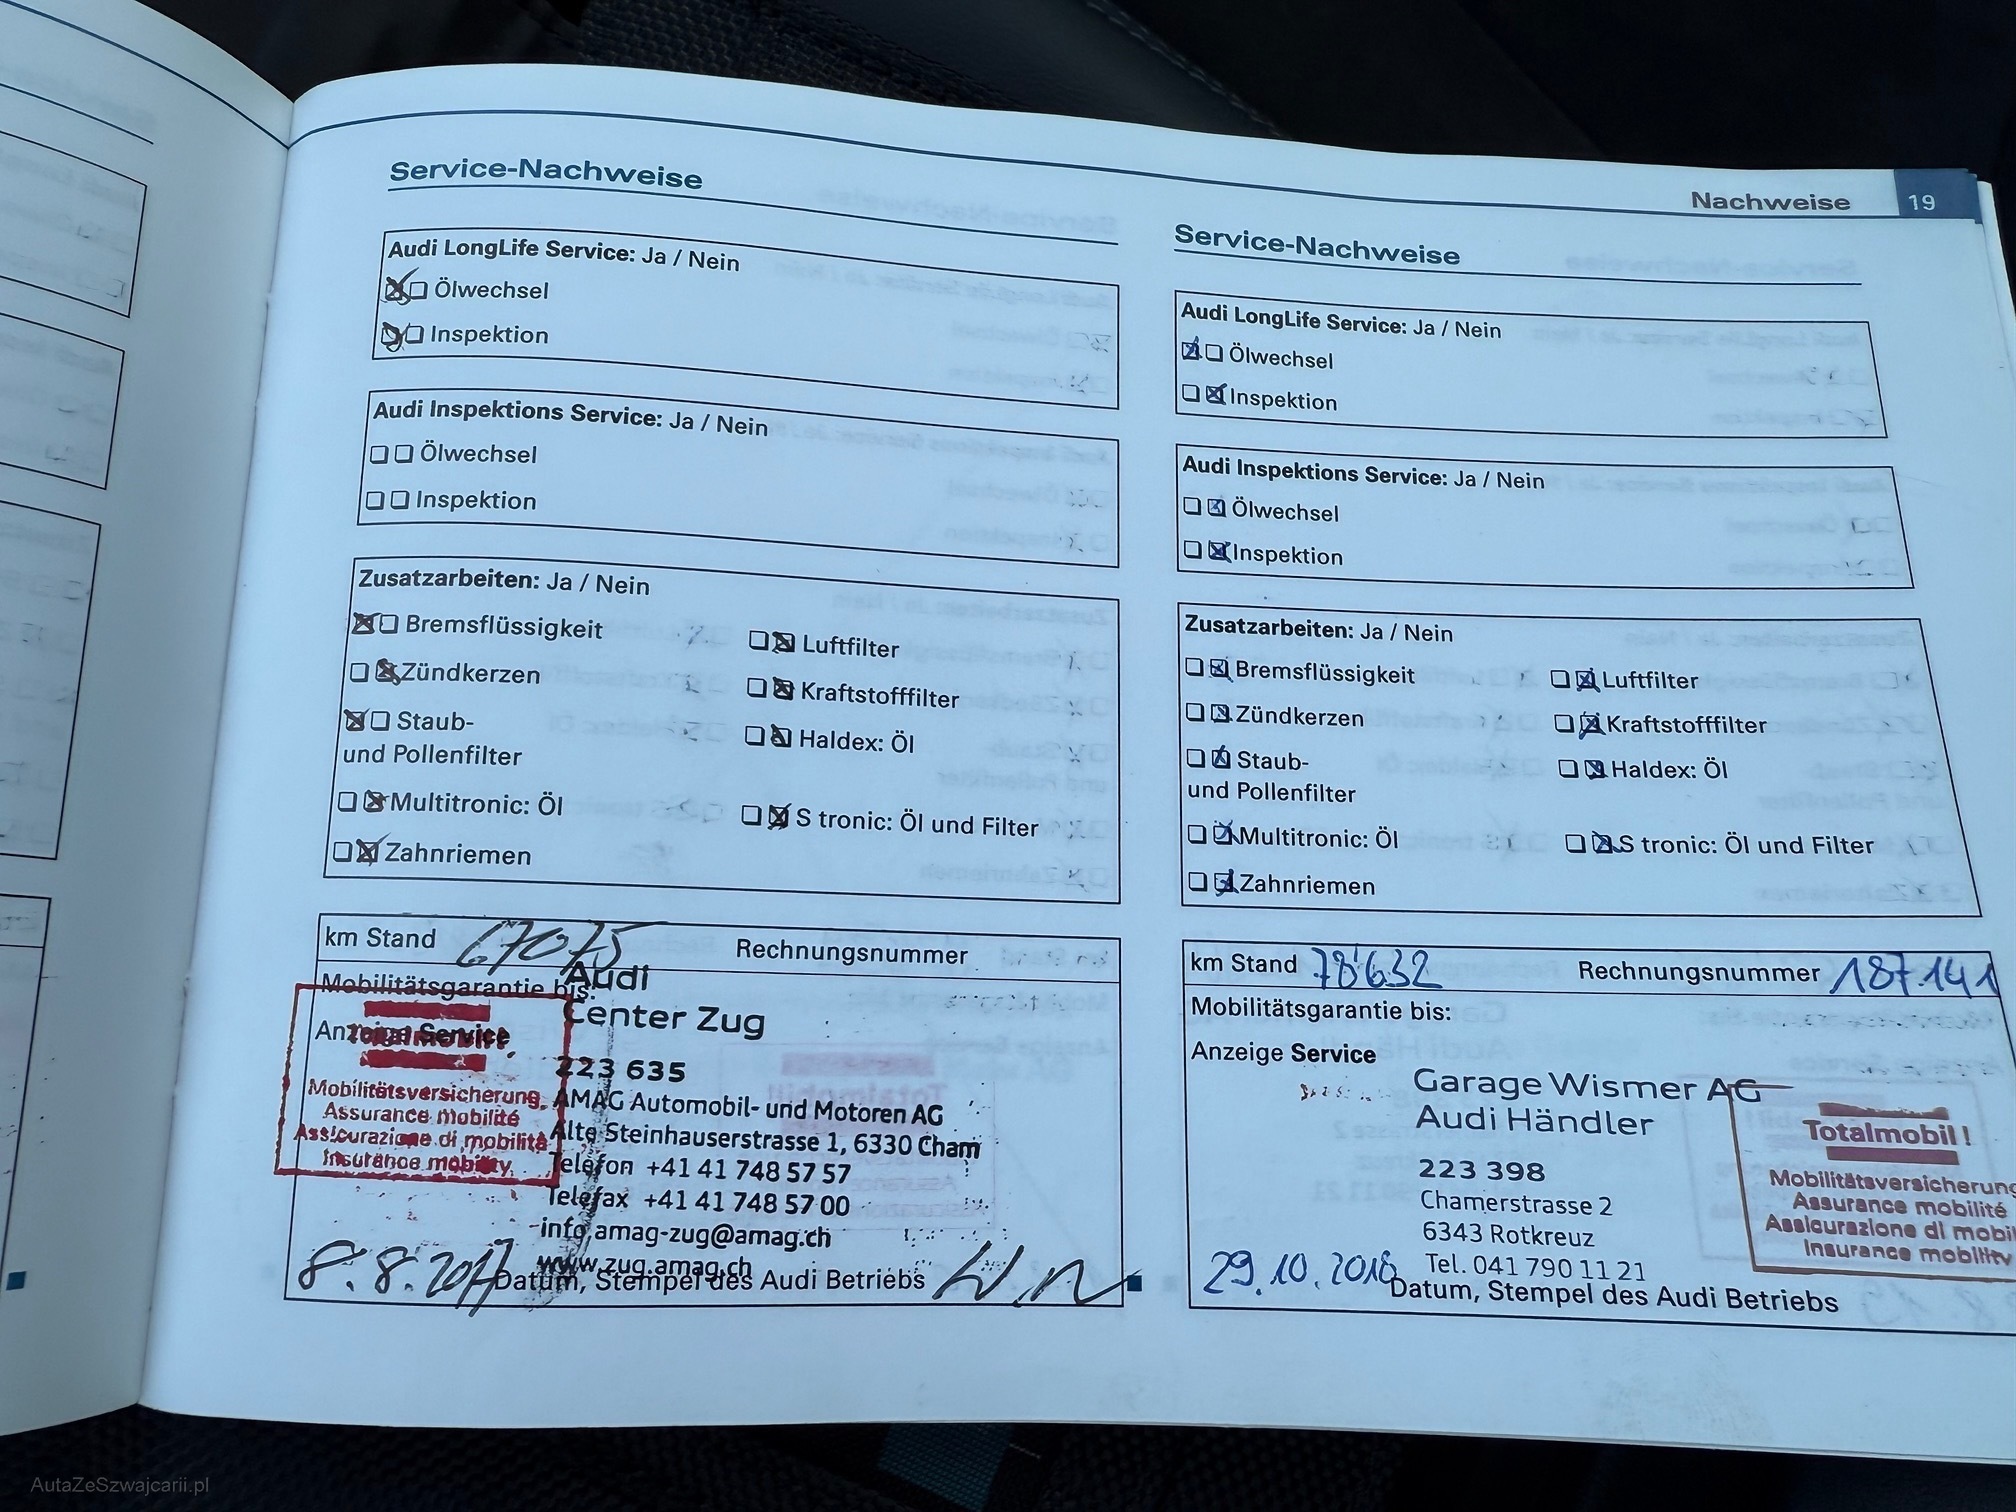 Nachweise 19
Service-Nachweise
Audi LongLife Service: Ja / Nein
Ölwechsel
Inspektion
Audi Inspektions Service: Ja / Nein
Ölwechsel
Inspektion
Zusatzarbeiten: Ja / Nein
Bremsflüssigkeit
Luftfilter
Zündkerzen
Kraftstofffilter
Staub-
und Pollenfilter
Haldex: Öl
Multitronic: Öl
S tronic: Öl und Filter
Zahnriemen
km Stand 67075 Rechnungsnummer
Mobilitätsgarantie bis:
Anzeige Service
Totalmobil!
Mobilitätsversicherung
Assurance mobilité
Assicurazione di mobilità
Insurance mobility
Audi
Center Zug
223 635
AMAG Automobil- und Motoren AG
Alte Steinhauserstrasse 1, 6330 Cham
Telefon +41 41 748 57 57
Telefax +41 41 748 57 00
info.amag-zug@amag.ch
www.zug.amag.ch
8.8.2017 Datum, Stempel des Audi Betriebs
Service-Nachweise
Audi LongLife Service: Ja / Nein
Ölwechsel
Inspektion
Audi Inspektions Service: Ja / Nein
Ölwechsel
Inspektion
Zusatzarbeiten: Ja / Nein
Bremsflüssigkeit
Luftfilter
Zündkerzen
Kraftstofffilter
Staub-
und Pollenfilter
Haldex: Öl
Multitronic: Öl
S tronic: Öl und Filter
Zahnriemen
km Stand 78'632 Rechnungsnummer 187.141
Mobilitätsgarantie bis:
Anzeige Service
Garage Wismer AG
Audi Händler
223 398
Chamerstrasse 2
6343 Rotkreuz
Tel. 041 790 11 21
Totalmobil!
Mobilitätsversicherung
Assurance mobilité
Assicurazione di mobil
Insurance mobility
29.10.2018 Datum, Stempel des Audi Betriebs
AutaZeSzwajcarii.pl